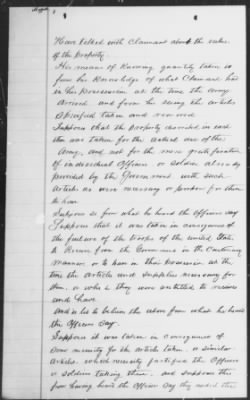 Have talked with Claimant about the value
of the property.
His means of knowing quantity taken is
from his knowledge of what Claimant had
in his possession at the time the army
arrived and from his seeing the articles
specified taken and removed
Suppose that the property charged in each
item was taken for the actual use of the
Army, and not for the mere gratification
of individual Officers or Soldiers already
provided by the Government with such
articles as were necessary or proper for them
to have
Supposes so from what he heard the Officers say
Suppose that it was taken in consequence of
the failure of the troops of the United States
to Receive from the Government in the Customary
manner or to have in their possession at the
time the articles and supplies necessary for
them, or which they were entitled to receive
and have
And is led to believe the above from what he heard
the Officers say.
Suppose it was taken in consequence of
some necessity for the articles taken, or similar
articles, which necessity justified the Officers
or soldiers taking them. and suppose this
from having heard the Officers say they needed them